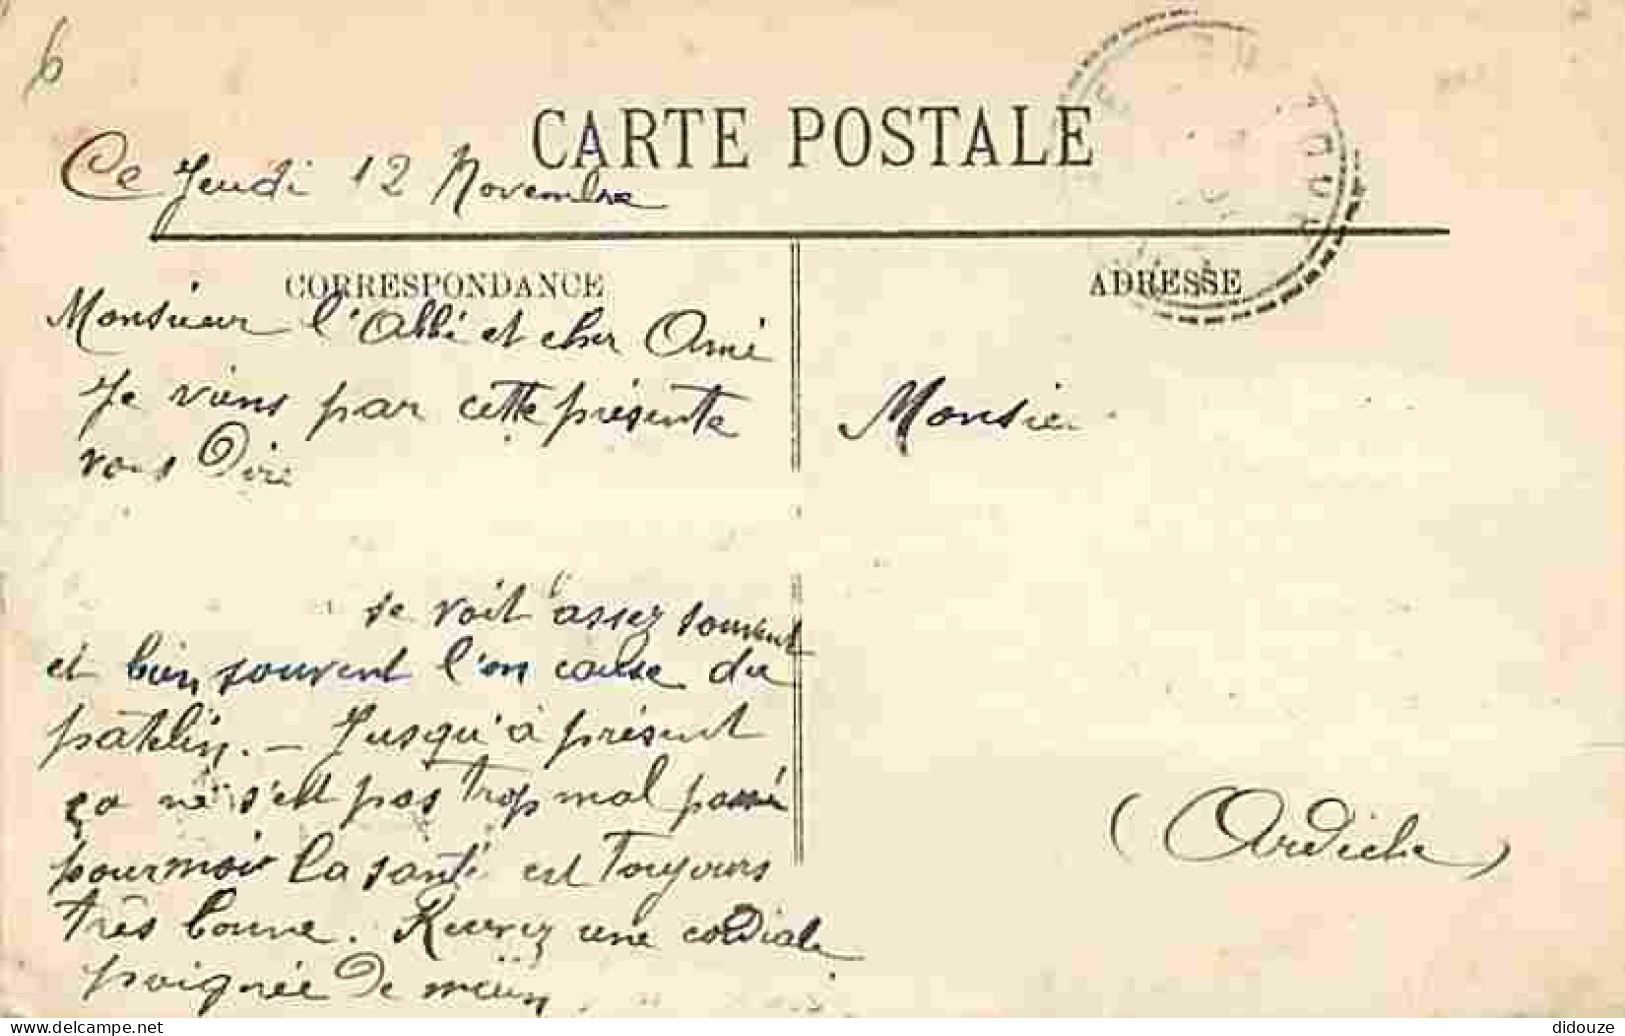 6
CARTE POSTALE
Ce Jeudi 12 Novembre
CORRESPONDANCE
Monsieur l'Abbé et cher Ami
Je viens par cette présente
vous Dire
se voit assez souvent
et bien souvent l'on cause du
patelin. — Jusqu'à présent
ça ne s'est pas trop mal passé
pour moi la santé est Toujours
très bonne. Recevez une cordiale
poignée De main
ADRESSE
Monsieu
(Ardèche)
delcampe.net
didouze